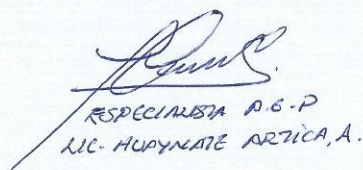 ESPECIALISTA A.G-P
LIC- HUAYNATE ARTICA, A.